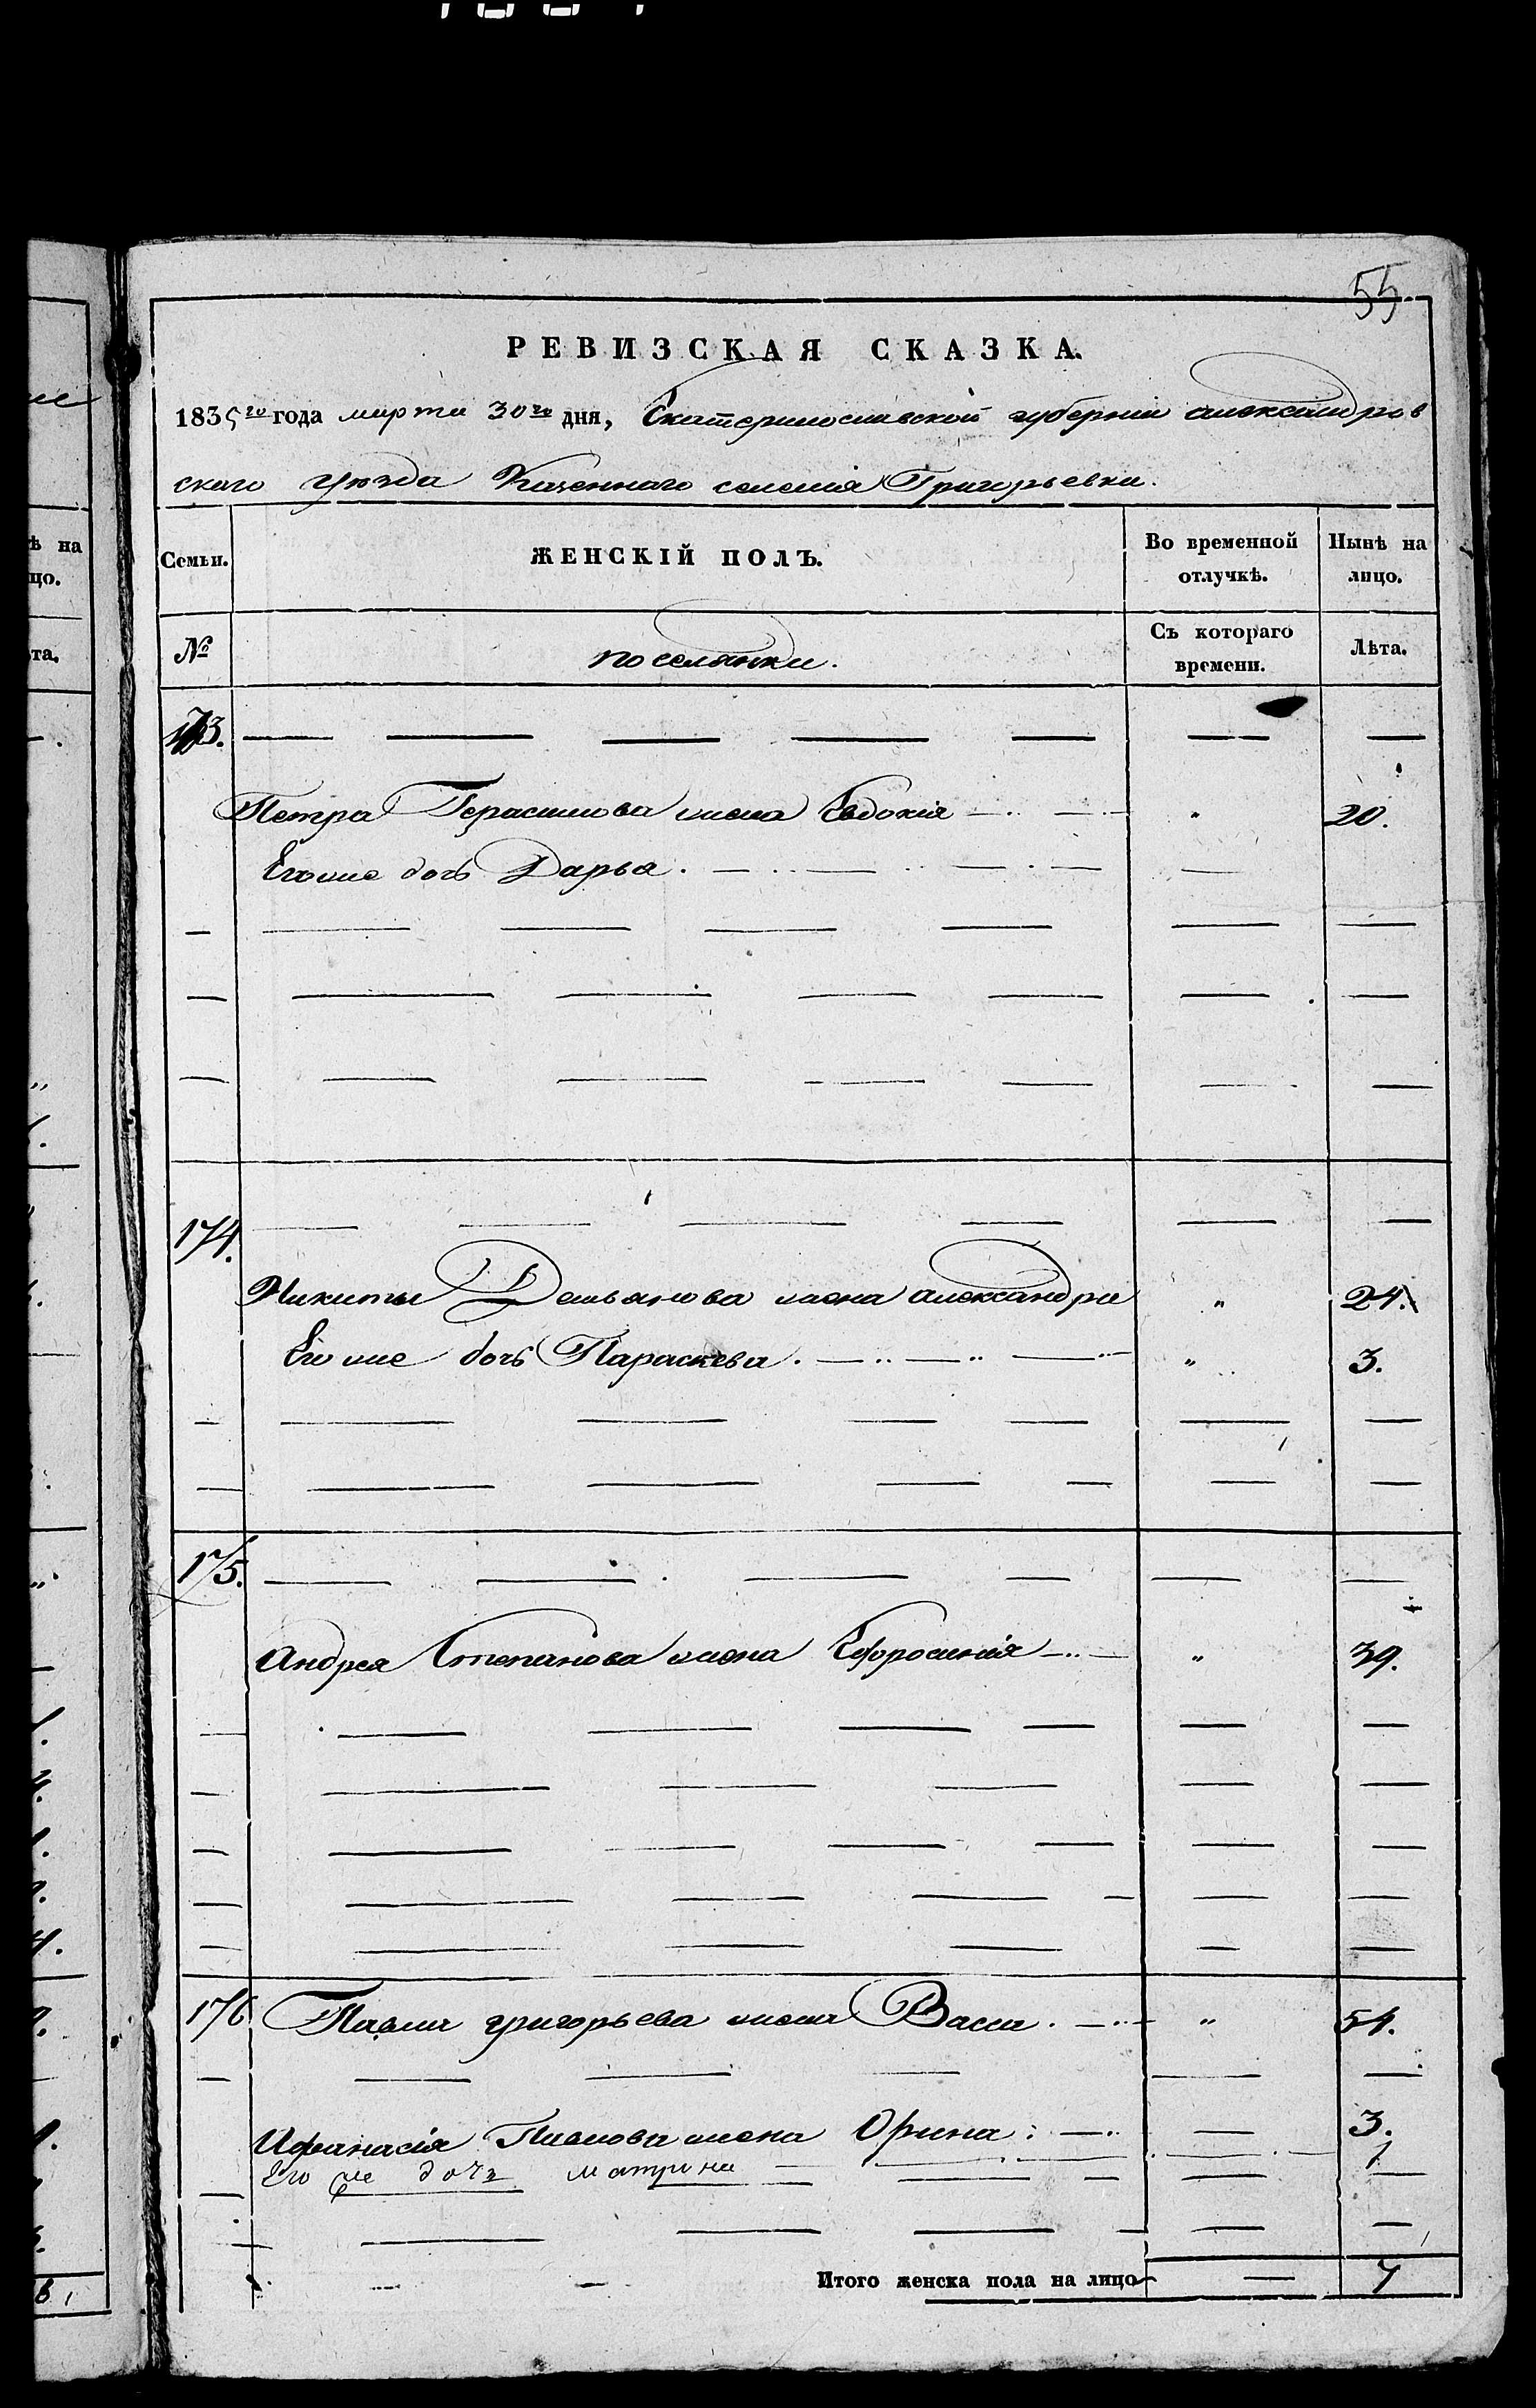 55.
РЕВИЗСКАЯ СКАЗКА.
1835го года марта 30го дня, Екатеринославской губернии александров
ского уѣзда Казенного селенiя Григорьевки.
Семьи. ЖЕНСКІЙ ПОЛЪ. Во временной отлучкѣ. Нынѣ на лицо.
№ поселянки. Съ котораго времени. Лѣта.
173.
Петра Герасимова жена Евдокия " 20.
Его же дочь Дарья.
174.
Никиты Демьянова жена александра " 24.
Его же дочь Параскева. " 3.
175.
Андрея Степанова жена Ефросинiя " 39.
176 Павла григорьева жена Васса. " 54.
Афанасiя Павлова жена Орина: 3.
Его же дочь матрона 1
Итого женска пола на лицо 7